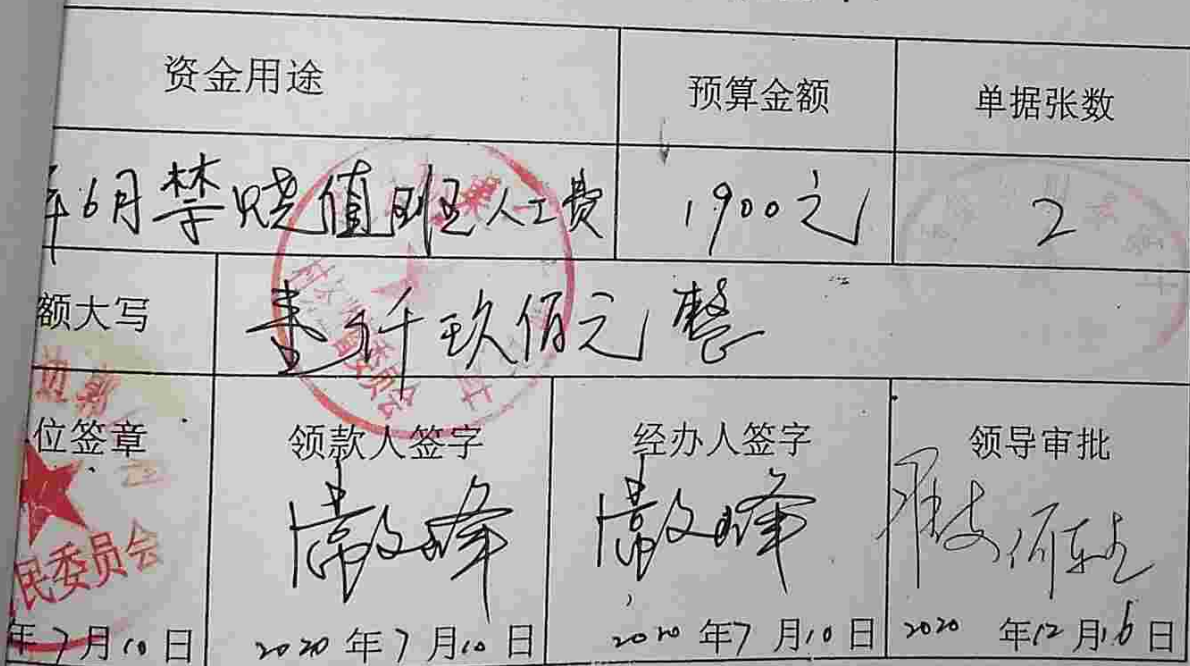 资金用途 预算金额 单据张数
年6月禁烧值班人工费 1900元 2
额大写 壹仟玖佰元整
位签章 领款人签字 经办人签字 领导审批
民委员会
年7月10日 2020年7月10日 2020年7月10日 2020年12月16日